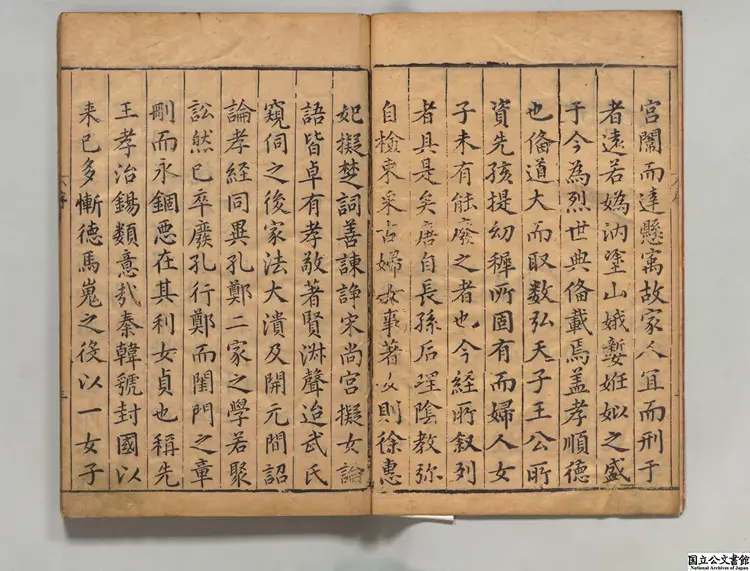 宮闈而達懸㝢故家人宜而刑于
者遠若媯汭塗山娥嫯姙姒之盛
于今為烈世典俻載焉盖孝順德
也俻道大而取数弘天子王公所
資先孩提幼穉所固有而婦人女
子未有能廢之者也今經所叙列
者具是矣唐自長孫后理陰教弥
自檢束采古婦女事著女則徐惠
妃擬楚詞善諫諍宋尚宮擬女論
語皆卓有孝敬著賢淑聲迨武氏
窺伺之後家法大潰及開元間詔
論孝經同異孔鄭二家之學若聚
訟然已卒廢孔行鄭而閨門之章
刪而永錮悪在其利女貞也稱先
王孝治錫類意㢤秦韓號封國以
来已多慚德馬嵬之役以一女子
六序
国立公文書館
National Archives of Japan